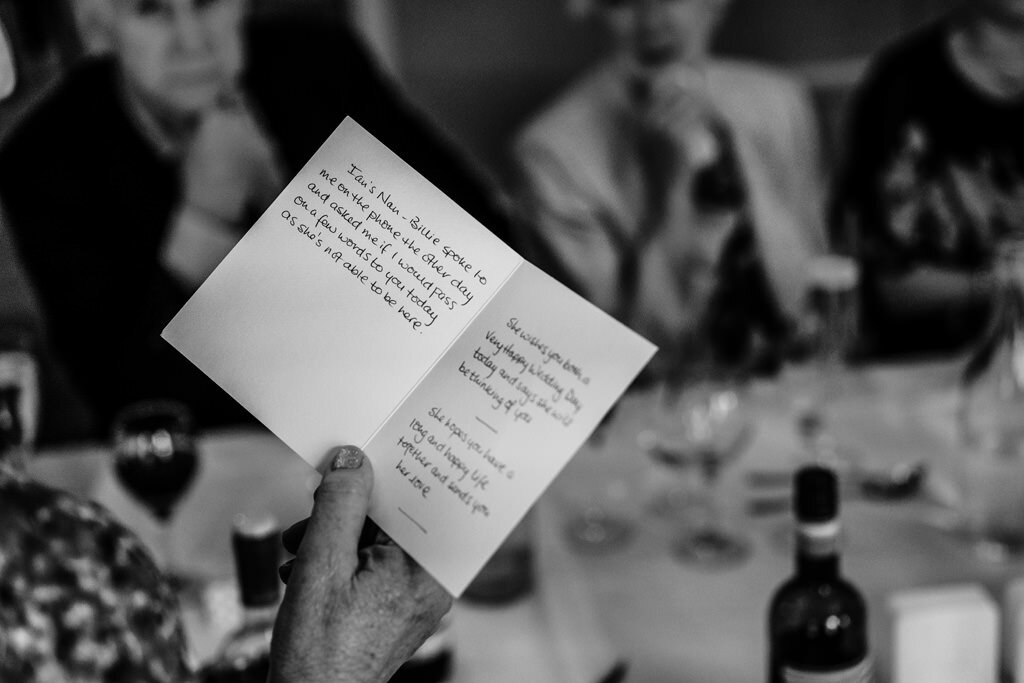 Ian's Nan - Billie spoke to
me on the phone the other day
and asked me if I would pass
on a few words to you today
as she's not able to be here.
She wishes you both a
very Happy Wedding Day
today and says she will
be thinking of you
She hopes you have a
long and happy life
together and sends you
her love